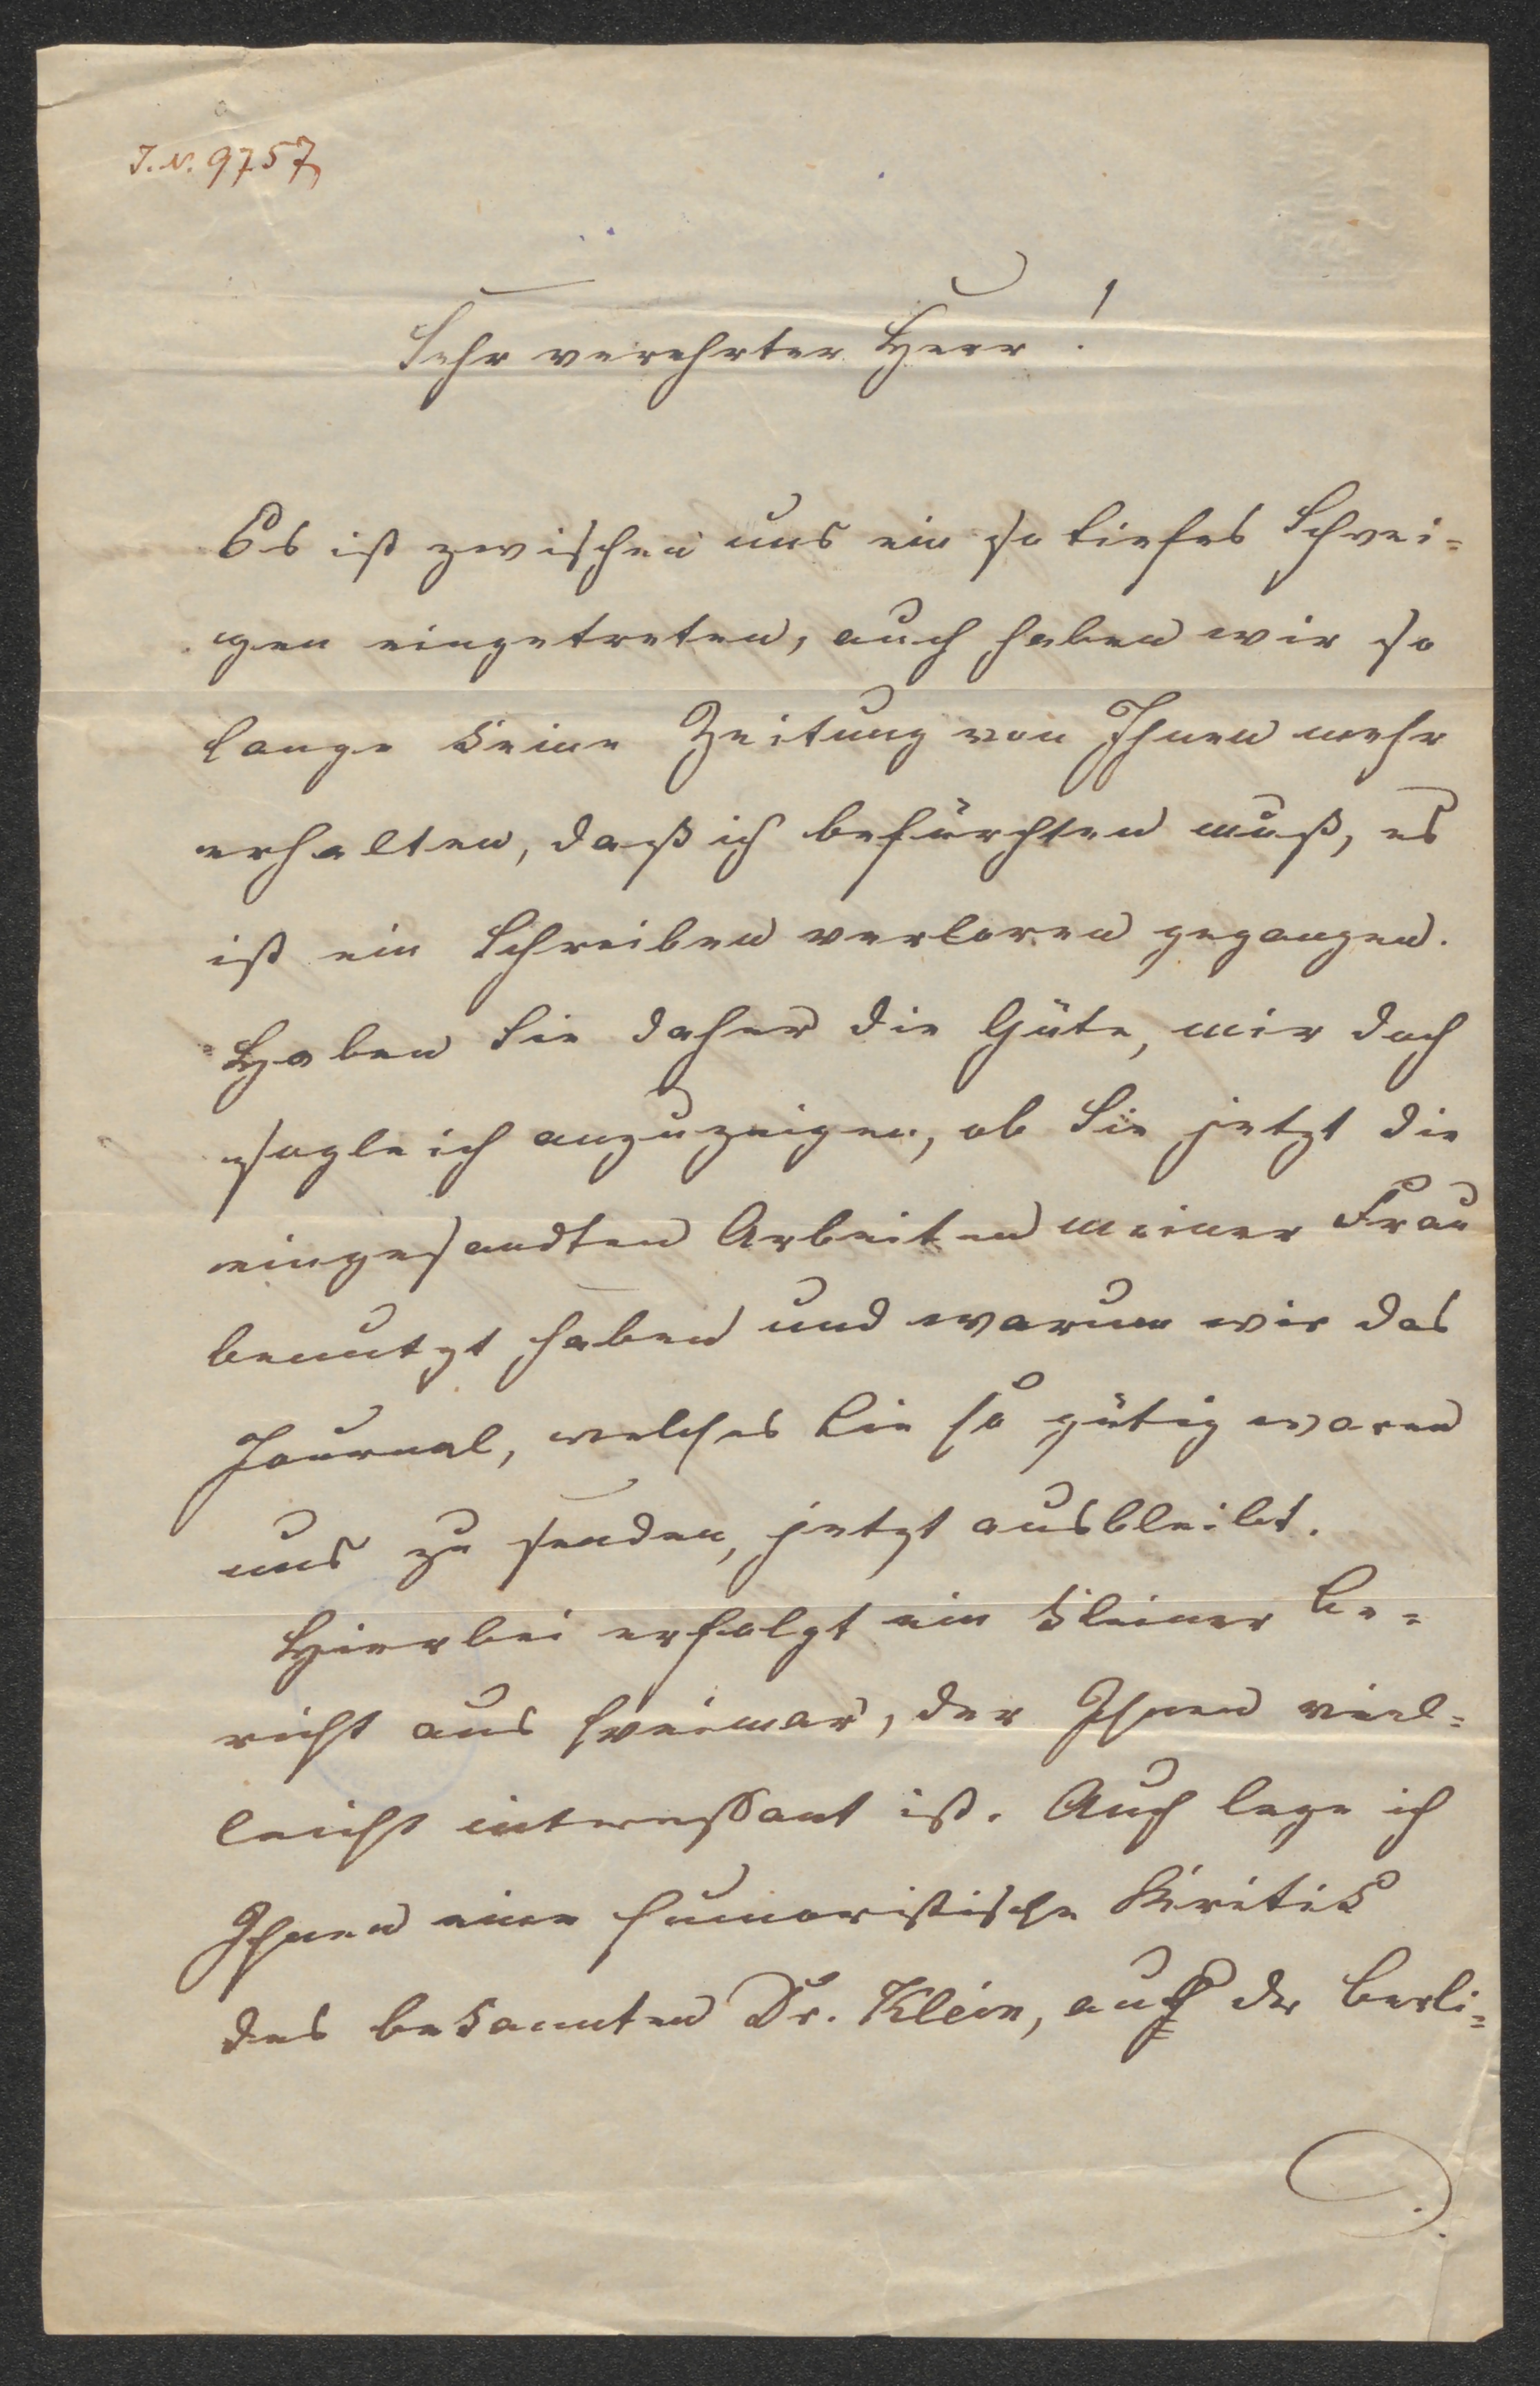 J.N. 9757
Sehr verehrter Herr!
Es ist zwischen uns ein so tiefes Schwei=
gen eingetreten, auch haben wir so
lange keine Zeitung von Ihnen mehr
erhalten, daß ich befürchten muß, es
ist ein Schreiben verloren gegangen.
Haben Sie daher die Güte, mir doch
sogleich anzuzeigen, ob Sie jetzt die
eingesandten Arbeiten meiner Frau
benutzt haben und warum wir das
Journal, welches Sie so gütig waren
uns zu senden, jetzt ausbleibt.
Hierbei erfolgt ein kleiner Be=
richt aus Weimar, der Ihnen viel=
leicht interessant ist. Auch lege ich
Ihnen eine humoristische Kritik
des bekannten Dr. Klein, auf der Berli=